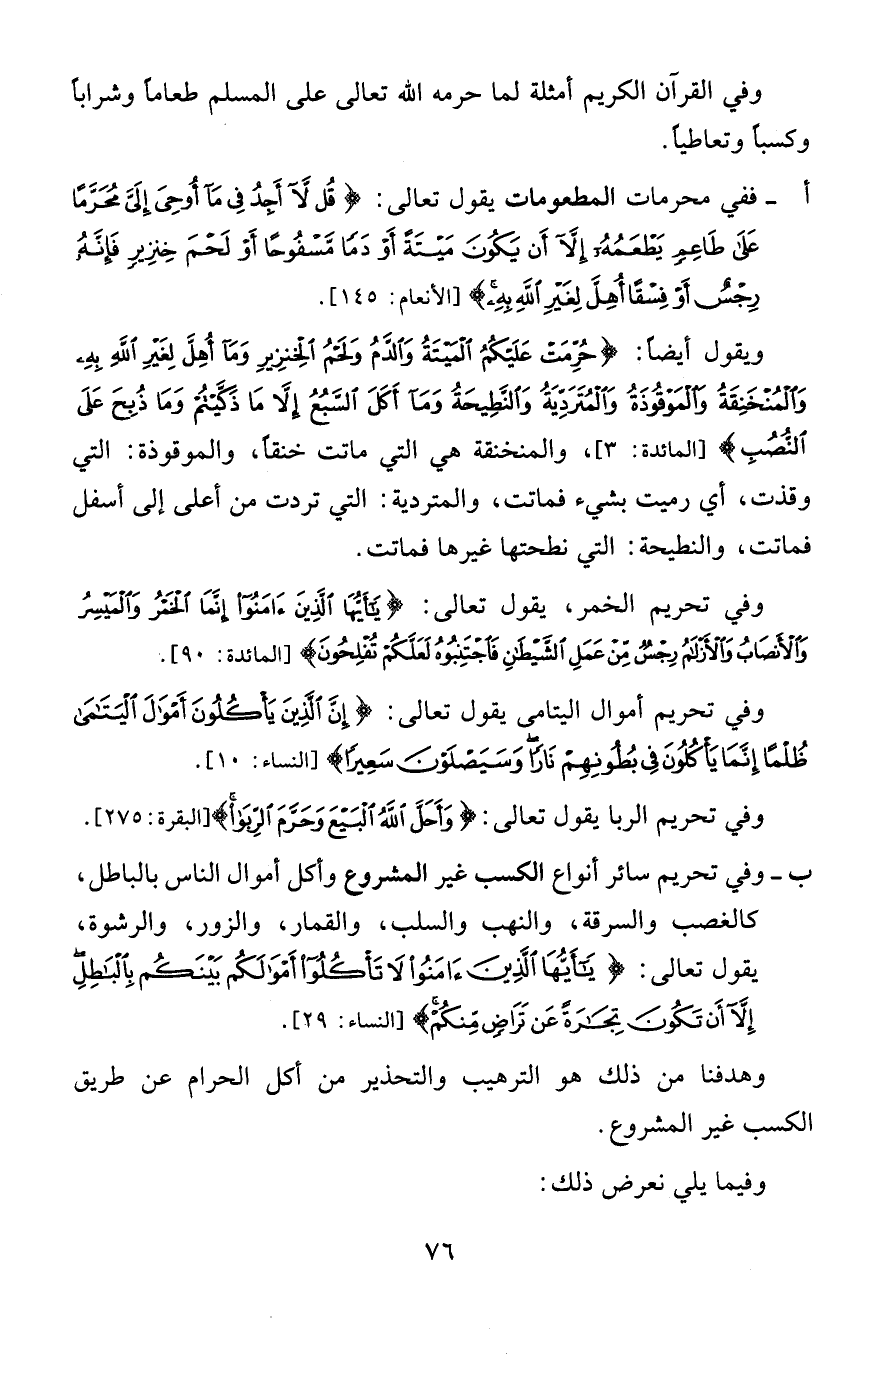 وفي القرآن الكريم أمثلة لما حرمه الله تعالى على المسلم طعاماً وشراباً
وكسباً وتعاطياً.
أ ـ ففي محرمات المطعومات يقول تعالى: ﴿ قُل لَّآ أَجِدُ فِى مَآ أُوحِىَ إِلَىَّ مُحَرَّمًا
عَلَىٰ طَاعِمٍ يَطْعَمُهُۥٓ إِلَّآ أَن يَكُونَ مَيْتَةً أَوْ دَمًا مَّسْفُوحًا أَوْ لَحْمَ خِنزِيرٍ فَإِنَّهُۥ
رِجْسٌ أَوْ فِسْقًا أُهِلَّ لِغَيْرِ ٱللَّهِ بِهِۦۚ﴾ [الأنعام: ١٤٥].
ويقول أيضاً: ﴿حُرِّمَتْ عَلَيْكُمُ ٱلْمَيْتَةُ وَٱلدَّمُ وَلَحْمُ ٱلْخِنزِيرِ وَمَآ أُهِلَّ لِغَيْرِ ٱللَّهِ بِهِۦ
وَٱلْمُنْخَنِقَةُ وَٱلْمَوْقُوذَةُ وَٱلْمُتَرَدِّيَةُ وَٱلنَّطِيحَةُ وَمَآ أَكَلَ ٱلسَّبُعُ إِلَّا مَا ذَكَّيْتُمْ وَمَا ذُبِحَ عَلَى
ٱلنُّصُبِ﴾ [المائدة: ٣]، والمنخنقة هي التي ماتت خنقاً، والموقوذة: التي
وقذت، أي رميت بشيء فماتت، والمتردية: التي تردت من أعلى إلى أسفل
فماتت، والنطيحة: التي نطحتها غيرها فماتت.
وفي تحريم الخمر، يقول تعالى: ﴿يَٰٓأَيُّهَا ٱلَّذِينَ ءَامَنُوٓا۟ إِنَّمَا ٱلْخَمْرُ وَٱلْمَيْسِرُ
وَٱلْأَنصَابُ وَٱلْأَزْلَٰمُ رِجْسٌ مِّنْ عَمَلِ ٱلشَّيْطَٰنِ فَٱجْتَنِبُوهُ لَعَلَّكُمْ تُفْلِحُونَ﴾ [المائدة: ٩٠].
وفي تحريم أموال اليتامى يقول تعالى: ﴿ إِنَّ ٱلَّذِينَ يَأْكُلُونَ أَمْوَٰلَ ٱلْيَتَٰمَىٰ
ظُلْمًا إِنَّمَا يَأْكُلُونَ فِى بُطُونِهِمْ نَارًاۖ وَسَيَصْلَوْنَ سَعِيرًا﴾ [النساء: ١٠].
وفي تحريم الربا يقول تعالى: ﴿ وَأَحَلَّ ٱللَّهُ ٱلْبَيْعَ وَحَرَّمَ ٱلرِّبَوٰا۟ۚ﴾ [البقرة: ٢٧٥].
ب ـ وفي تحريم سائر أنواع الكسب غير المشروع وأكل أموال الناس بالباطل،
كالغصب والسرقة، والنهب والسلب، والقمار، والزور، والرشوة،
يقول تعالى: ﴿ يَٰٓأَيُّهَا ٱلَّذِينَ ءَامَنُوا۟ لَا تَأْكُلُوٓا۟ أَمْوَٰلَكُم بَيْنَكُم بِٱلْبَٰطِلِۖ
إِلَّآ أَن تَكُونَ تِجَٰرَةً عَن تَرَاضٍ مِّنكُمْۚ﴾ [النساء: ٢٩].
وهدفنا من ذلك هو الترهيب والتحذير من أكل الحرام عن طريق
الكسب غير المشروع.
وفيما يلي نعرض ذلك:
٧٦